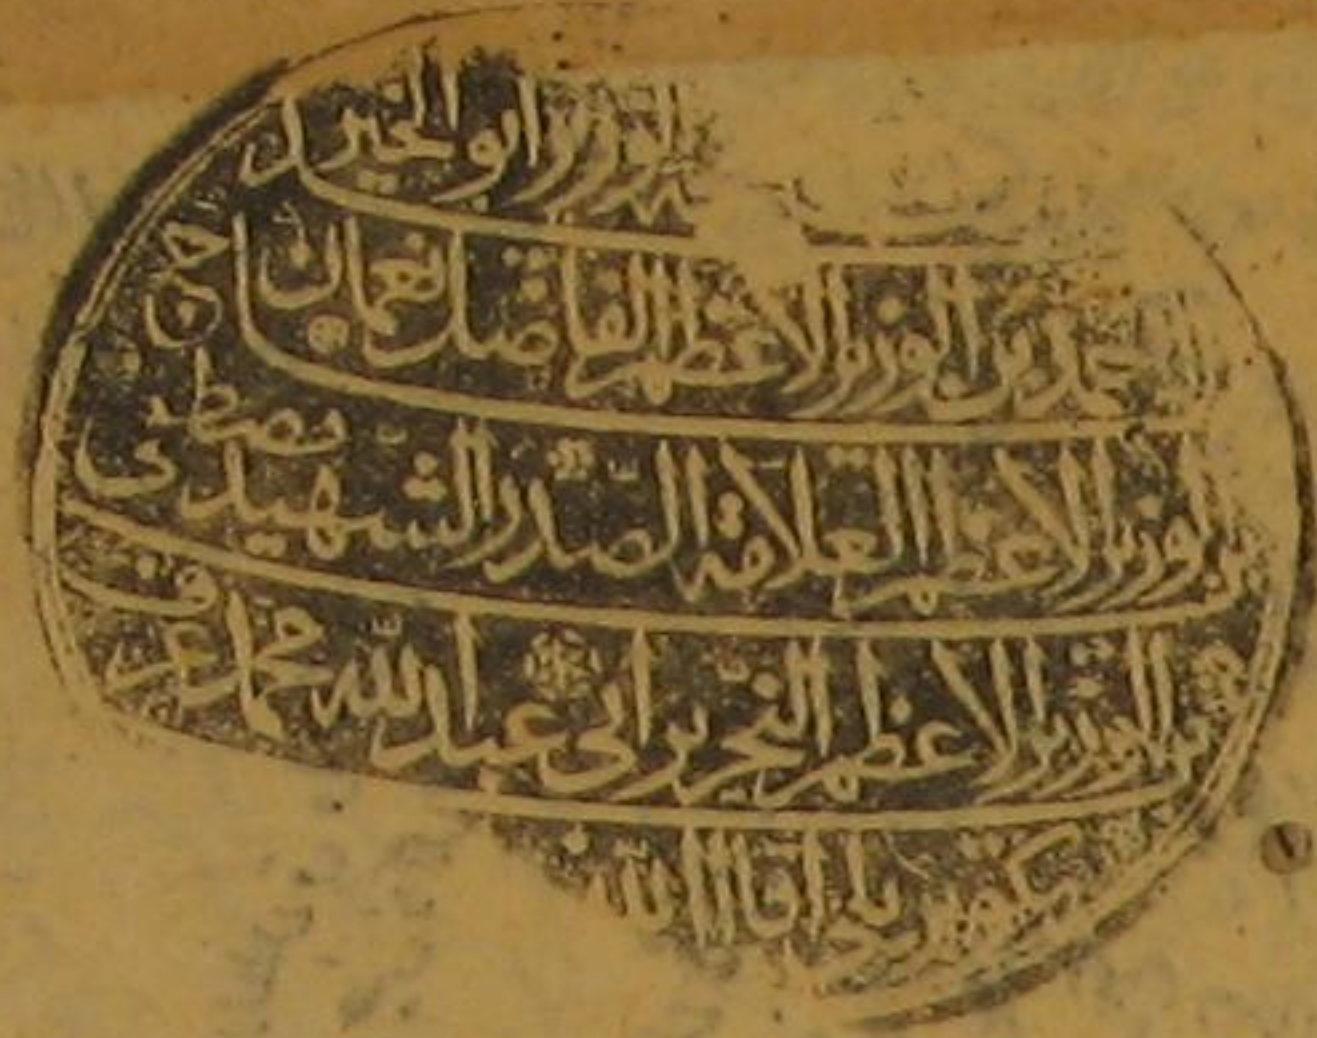 الوزير ابو الخير
احمد بن الوزير الاعظم الفاضل نعمان
بن الوزير الاعظم العلامة الصدر الشهيد مصطفى
بن الوزير الاعظم النحرير ابى عبد الله محمد عرف
اقال الله